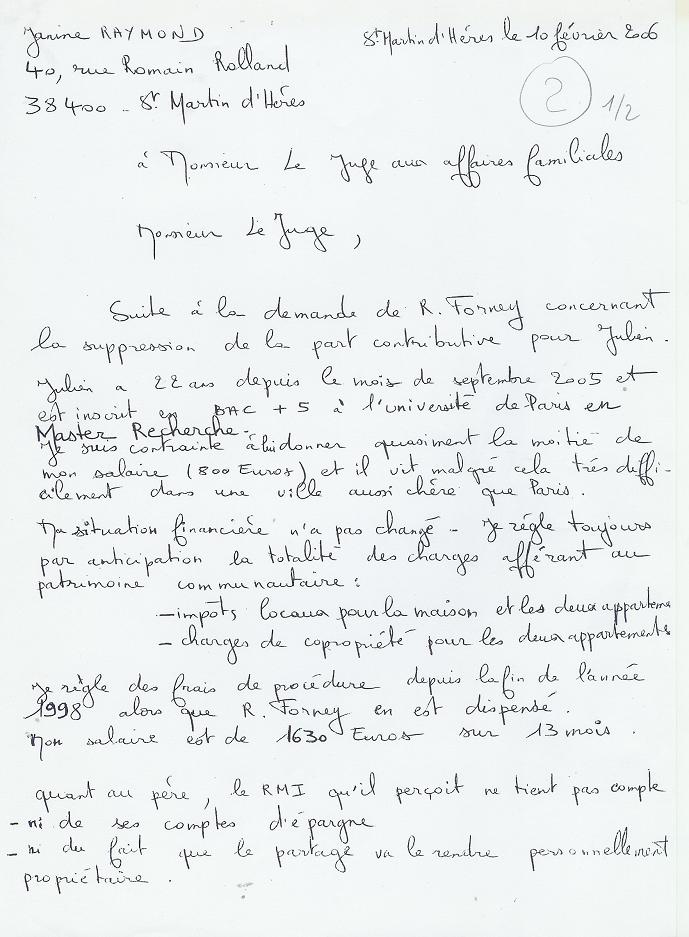 Janine RAYMOND
St Martin d'Hères le 10 février 2006
40, rue Romain Rolland
38400 - St Martin d'Hères
2 1/2
à Monsieur Le Juge aux affaires familiales
Monsieur Le Juge,
Suite à la demande de R. Forney concernant
la suppression de la part contributive pour Julien.
Julien a 22 ans depuis le mois de septembre 2005 et
est inscrit en BAC + 5 à l'université de Paris en
Master Recherche.
Je suis contrainte à lui donner quasiment la moitié de
mon salaire (800 Euros) et il vit malgré cela très diffi-
cilement dans une ville aussi chère que Paris.
Ma situation financière n'a pas changé - Je règle toujours
par anticipation la totalité des charges afférant au
patrimoine communautaire :
- impôts locaux pour la maison et les deux apparteme
- charges de copropriété pour les deux appartements
Je règle des frais de procédure depuis la fin de l'année
1998 alors que R. Forney en est dispensé.
Mon salaire est de 1630 Euros sur 13 mois.
quant au père, le RMI qu'il perçoit ne tient pas compte
- ni de ses comptes d'épargne
- ni du fait que le partage va le rendre personnellement
propriétaire.